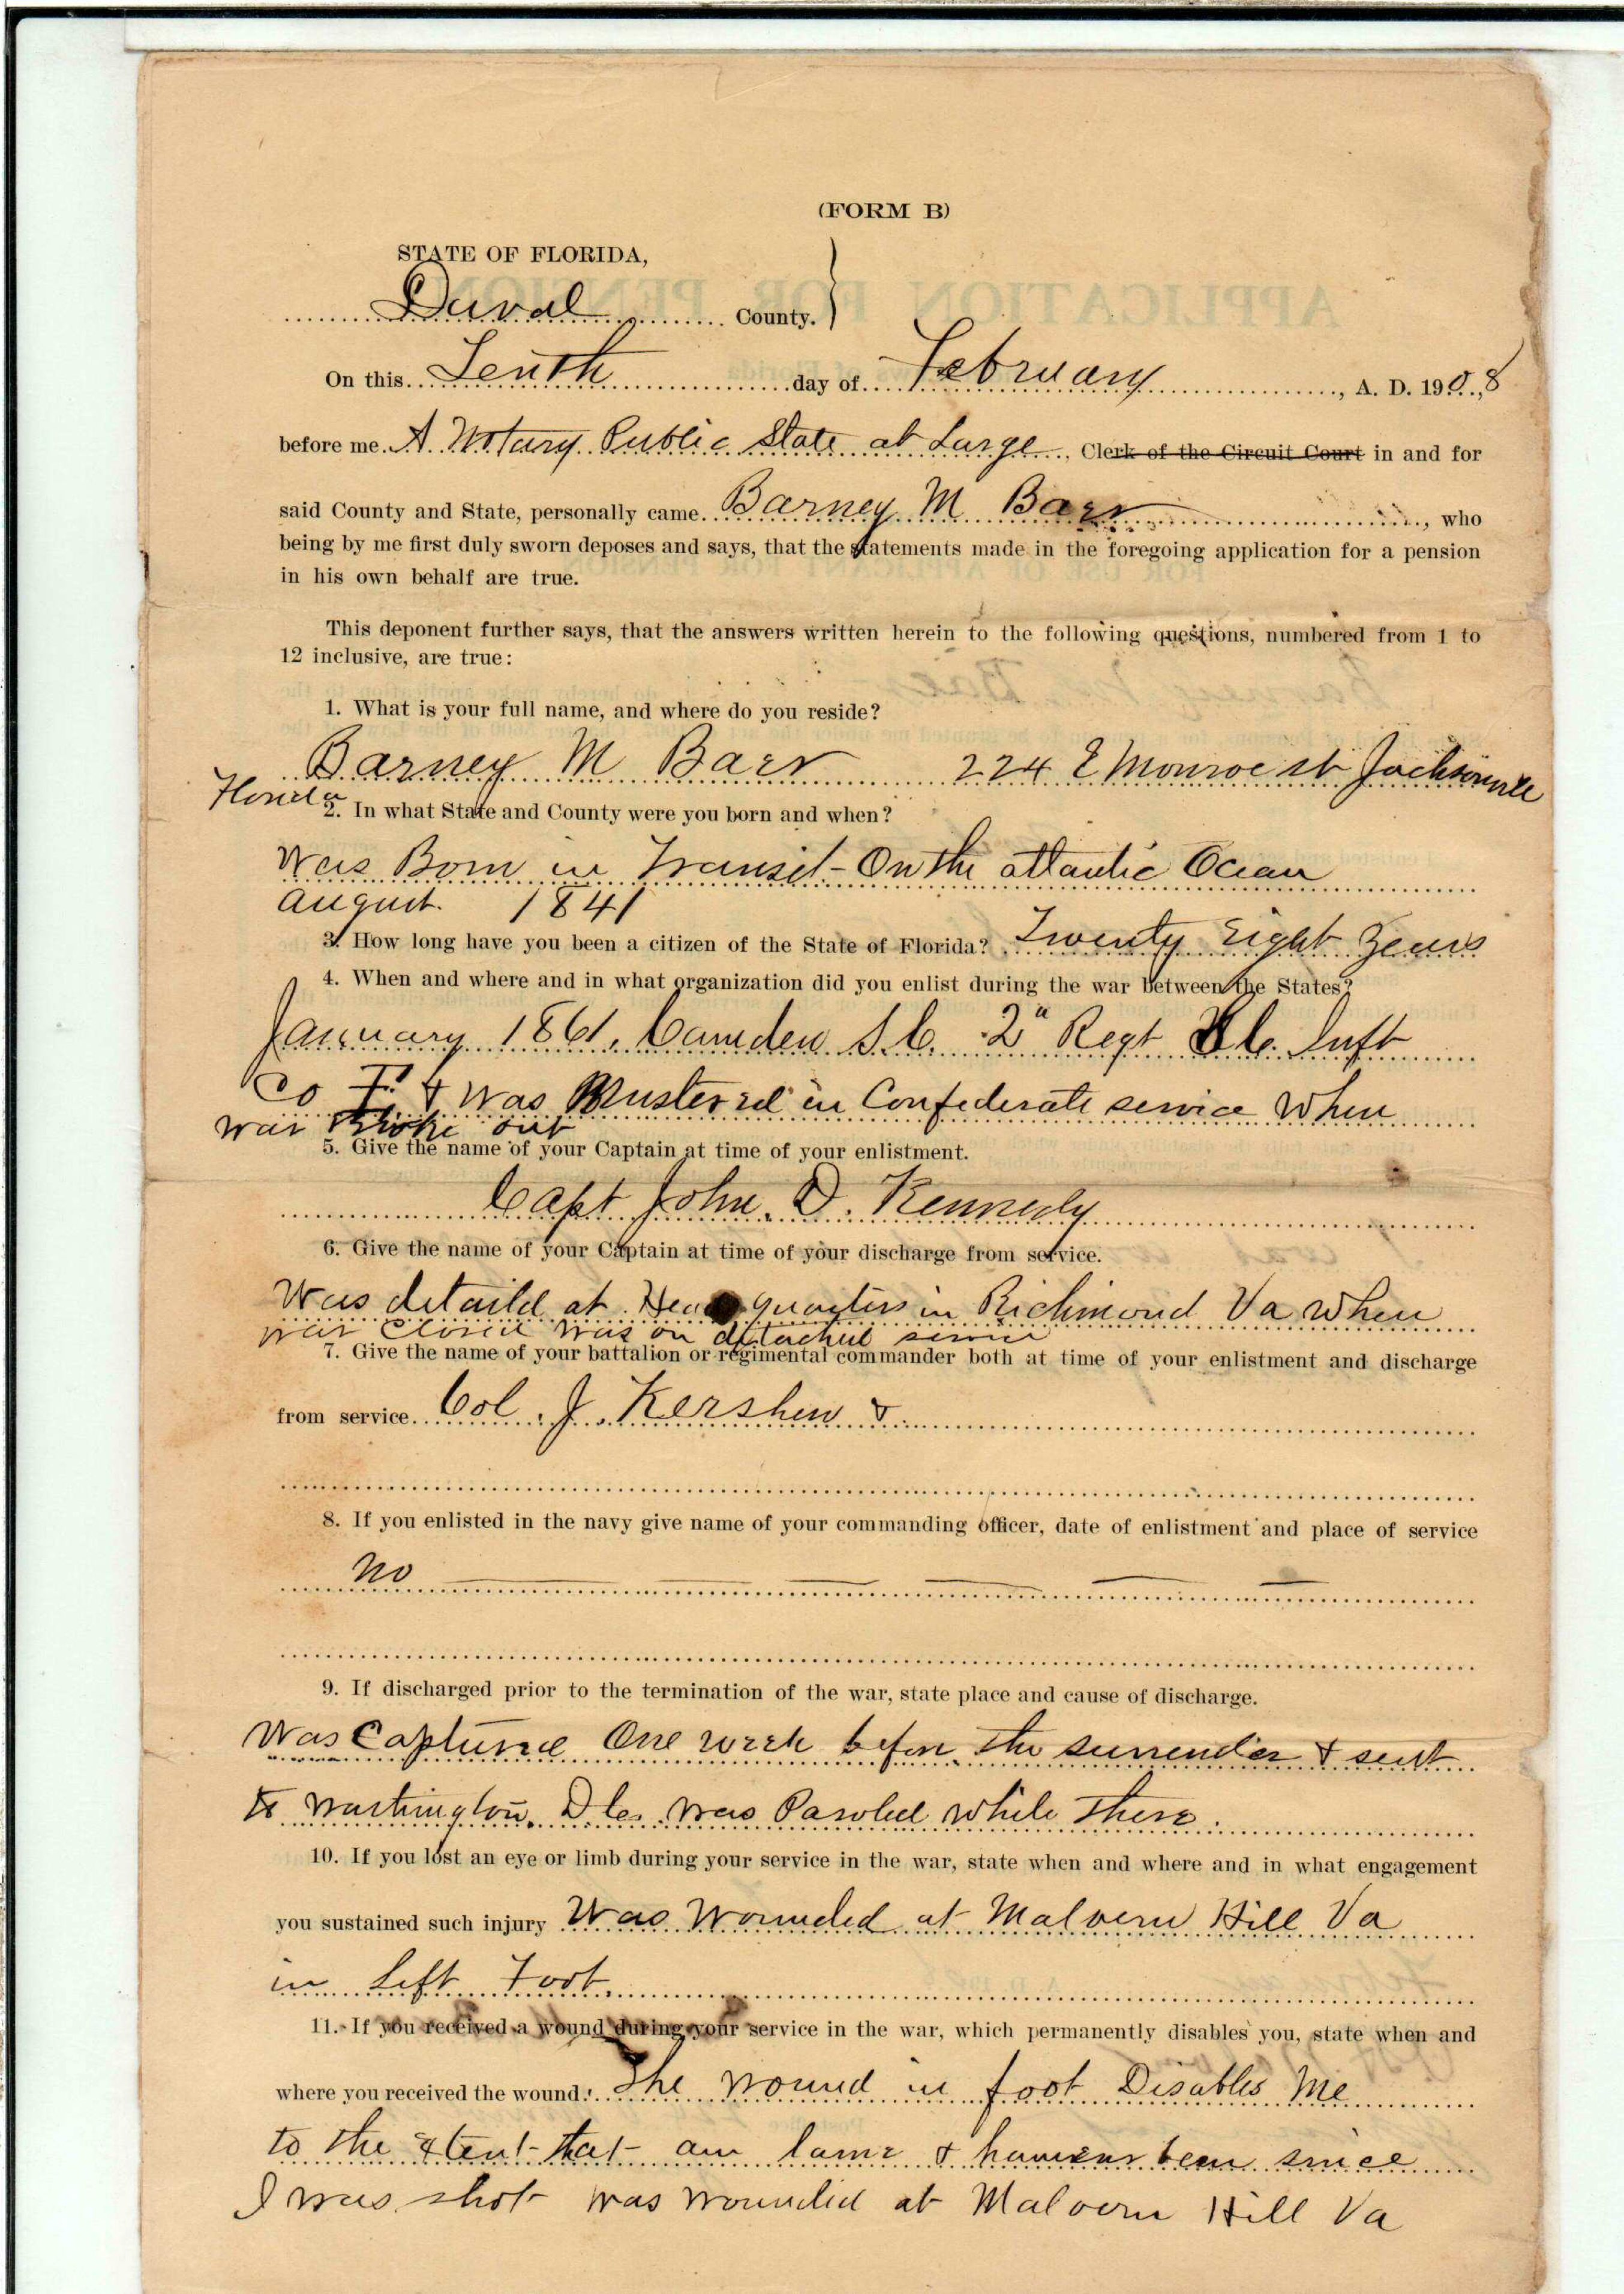 (FORM B)
STATE OF FLORIDA,
Duval County.
On this Tenth day of February, A. D. 1908
before me A Notary Public State at Large, Clerk of the Circuit Court in and for
said County and State, personally came Barney M Barr, who
being by me first duly sworn deposes and says, that the statements made in the foregoing application for a pension
in his own behalf are true.
This deponent further says, that the answers written herein to the following questions, numbered from 1 to
12 inclusive, are true:
1. What is your full name, and where do you reside?
Barney M Barr 224 E Monroe st Jacksonville
Florida
2. In what State and County were you born and when?
Was Born in Transit - On the atlantic Ocean
August 1841
3. How long have you been a citizen of the State of Florida? Twenty Eight Years
4. When and where and in what organization did you enlist during the war between the States?
January 1861, Camden S.C. 2" Regt S C. Inft
Co F. & Was Mustered in Confederate service When
war Broke out
5. Give the name of your Captain at time of your enlistment.
Capt John. D. Kennedy
6. Give the name of your Captain at time of your discharge from service.
Was detaild at Head quarters in Richmond Va when
war Closed was on detached service
7. Give the name of your battalion or regimental commander both at time of your enlistment and discharge
from service. Col. J. Kershew &
8. If you enlisted in the navy give name of your commanding officer, date of enlistment and place of service
No
9. If discharged prior to the termination of the war, state place and cause of discharge.
Was Captured One week before the surrender & sent
to Washington. D.C. was Paroled while There.
10. If you lost an eye or limb during your service in the war, state when and where and in what engagement
you sustained such injury Was Wounded at Malvern Hill Va
in Left Foot.
11. If you received a wound during your service in the war, which permanently disables you, state when and
where you received the wound. The wound in foot Disables Me
to the Extent that am lame & have been since
I was shot was wounded at Malvern Hill Va